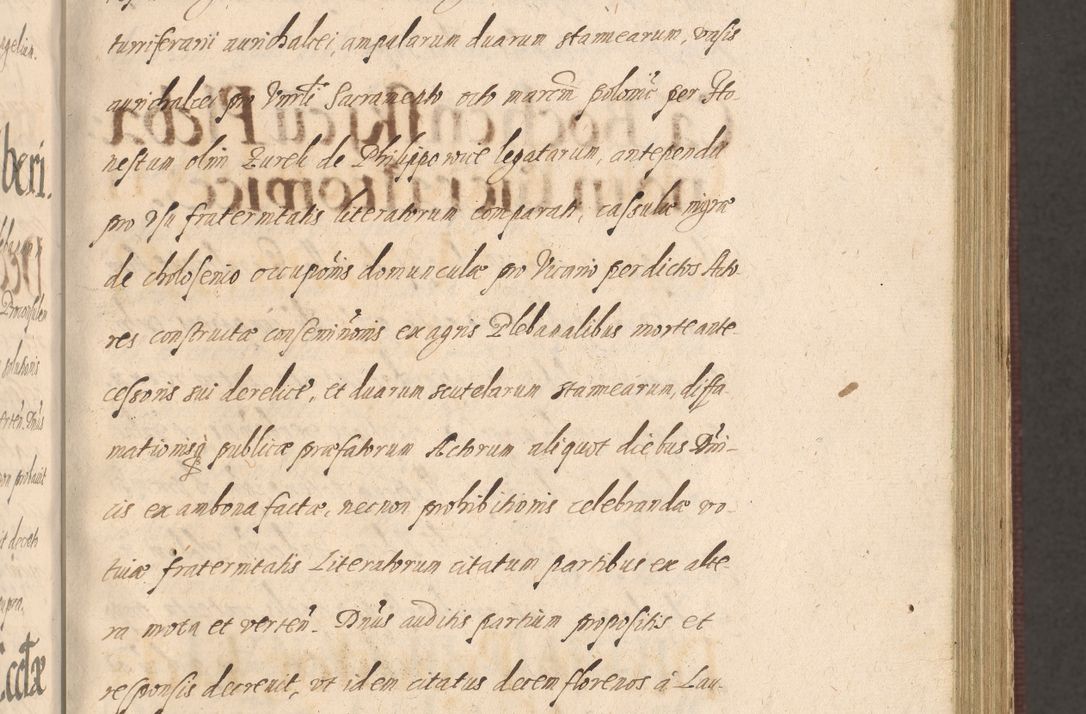 turriferarii aurichalcei, ampularum duarum stannearum, vasis
aurichalcei pro Vnrli Sacramento octo marcm polonic per Ho-
nestum olim Zurek de Philippowice legatarum, antependii
pro vsu fraternitatis literatorum comparati, casulæ nigræ
de cholosenio occuponis domunculæ pro Vicario per dictos Acto
res constructæ conseminonis ex agris Plebanalibus morte ante
cessoris sui derelictę, et duarum scutelarum stannearum, diffa-
mationisq publicæ præfatorum Actorum aliquot diebus Dni-
cis ex ambona factæ, necnon prohibitionis celebrandæ vo-
tiuæ fraternitatis Literatorum citatum partibus ex alte-
ra mota et verten. Dnus auditis partium propositis et
responsis decreuit, vt idem citatus decem florenos à Lau-